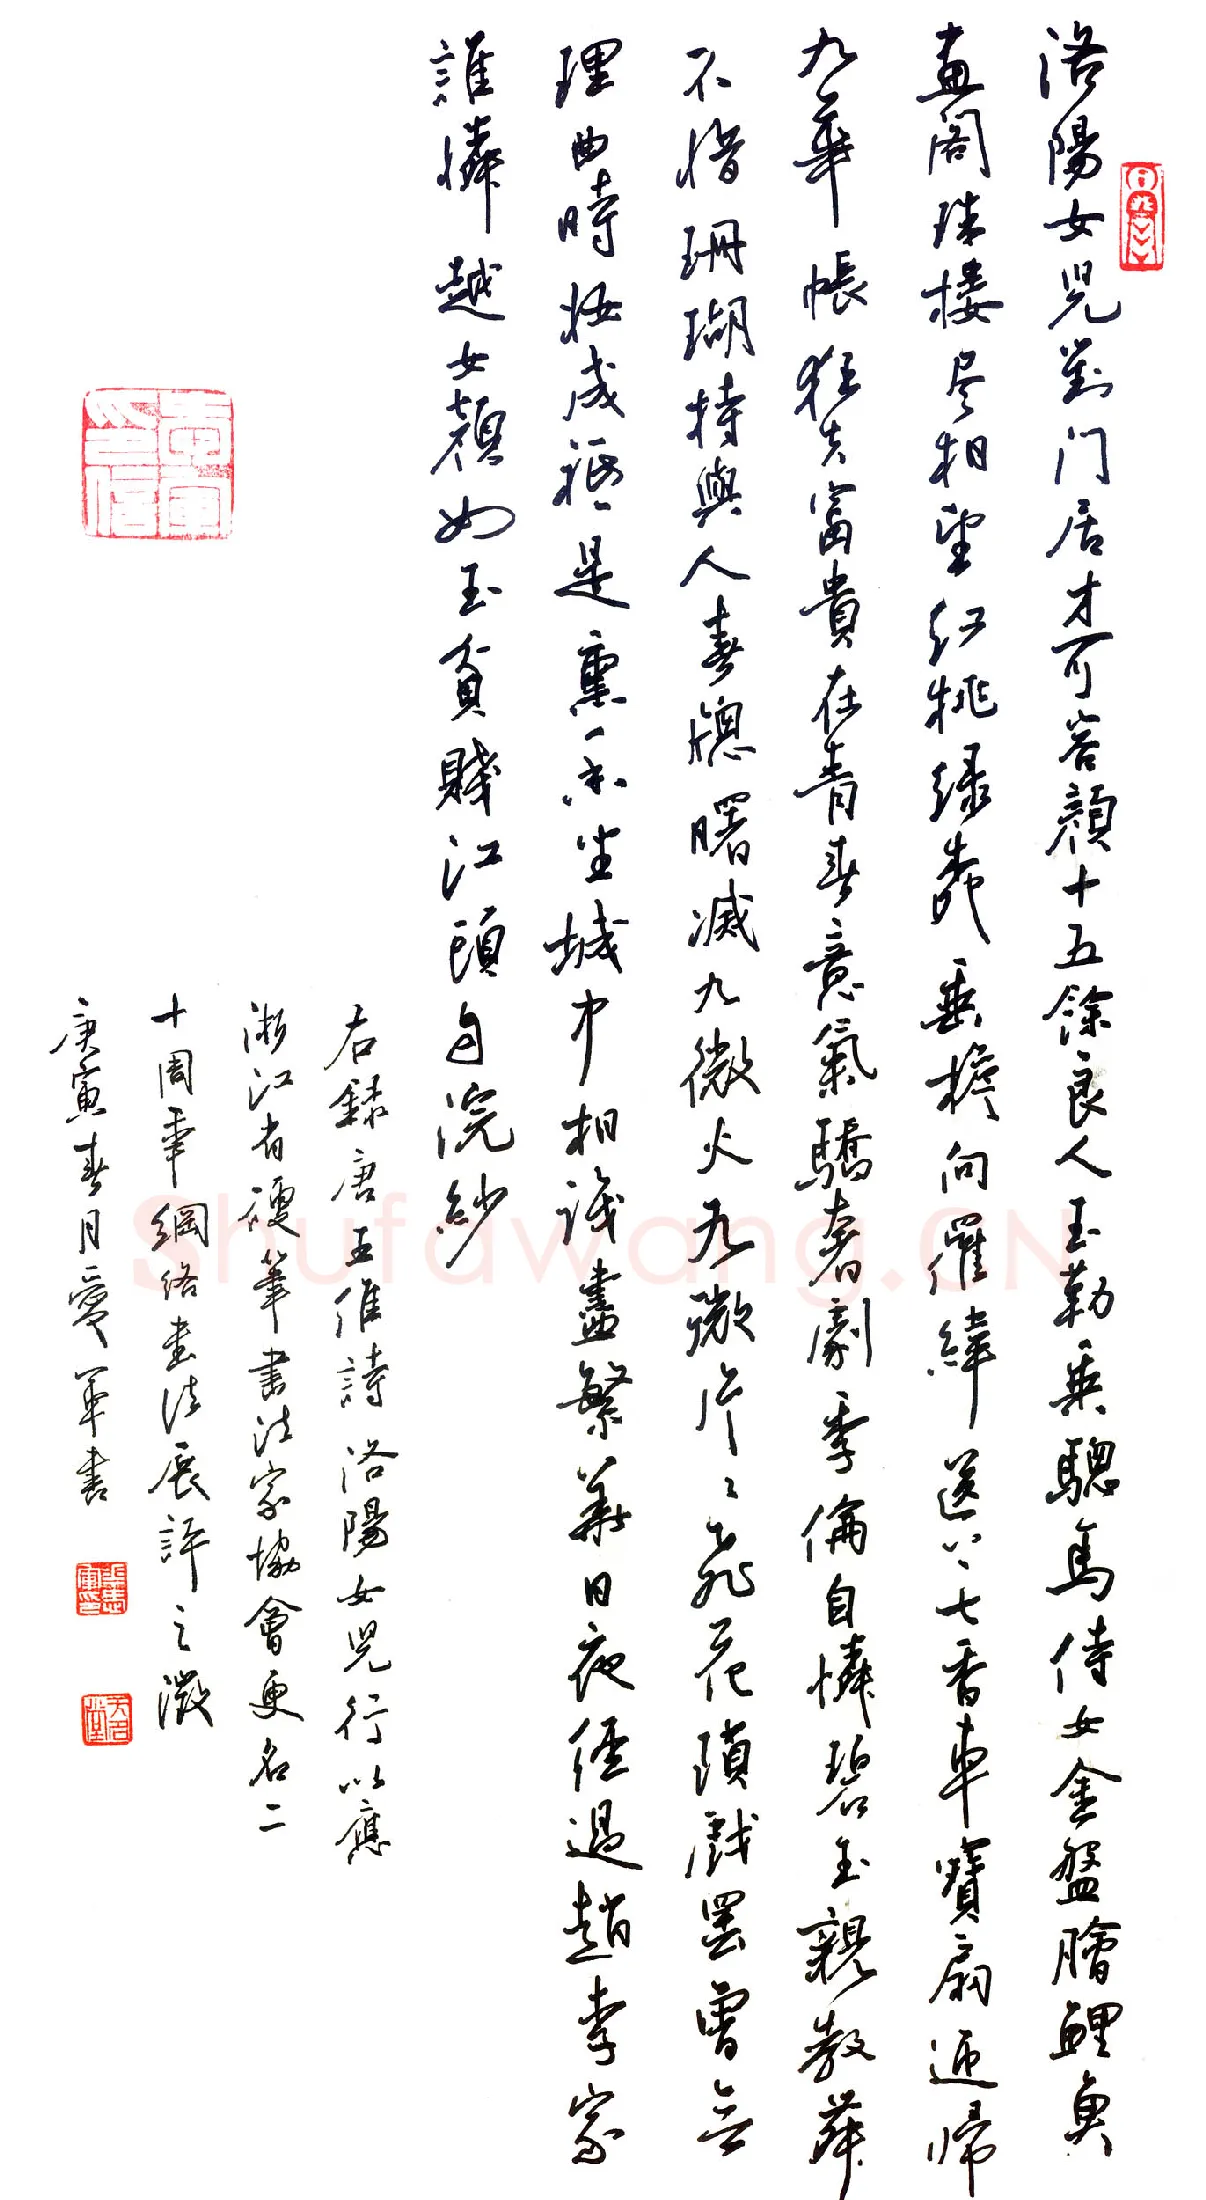 洛陽女兒對门居才可容顏十五餘良人玉勒乘驄馬侍女金盤膾鯉魚
畫阁珠楼尽相望红桃绿柳垂檐向羅幃送上七香車寶扇迎歸
九華帳狂夫富貴在青春意氣驕奢劇季倫自憐碧玉親教舞
不惜珊瑚持與人春牕曙滅九微火九微片〻飛花璅戲罷曾無
理曲時妝成衹是熏香坐城中相識盡繁華日夜經過趙李家
誰憐越女顏如玉貧賤江頭自浣紗
右録唐王維詩洛陽女兒行以應
浙江省硬筆書法家協會更名二
十周年網络书法展評之徵
庚寅春月愛軍书
Shufawang.CN